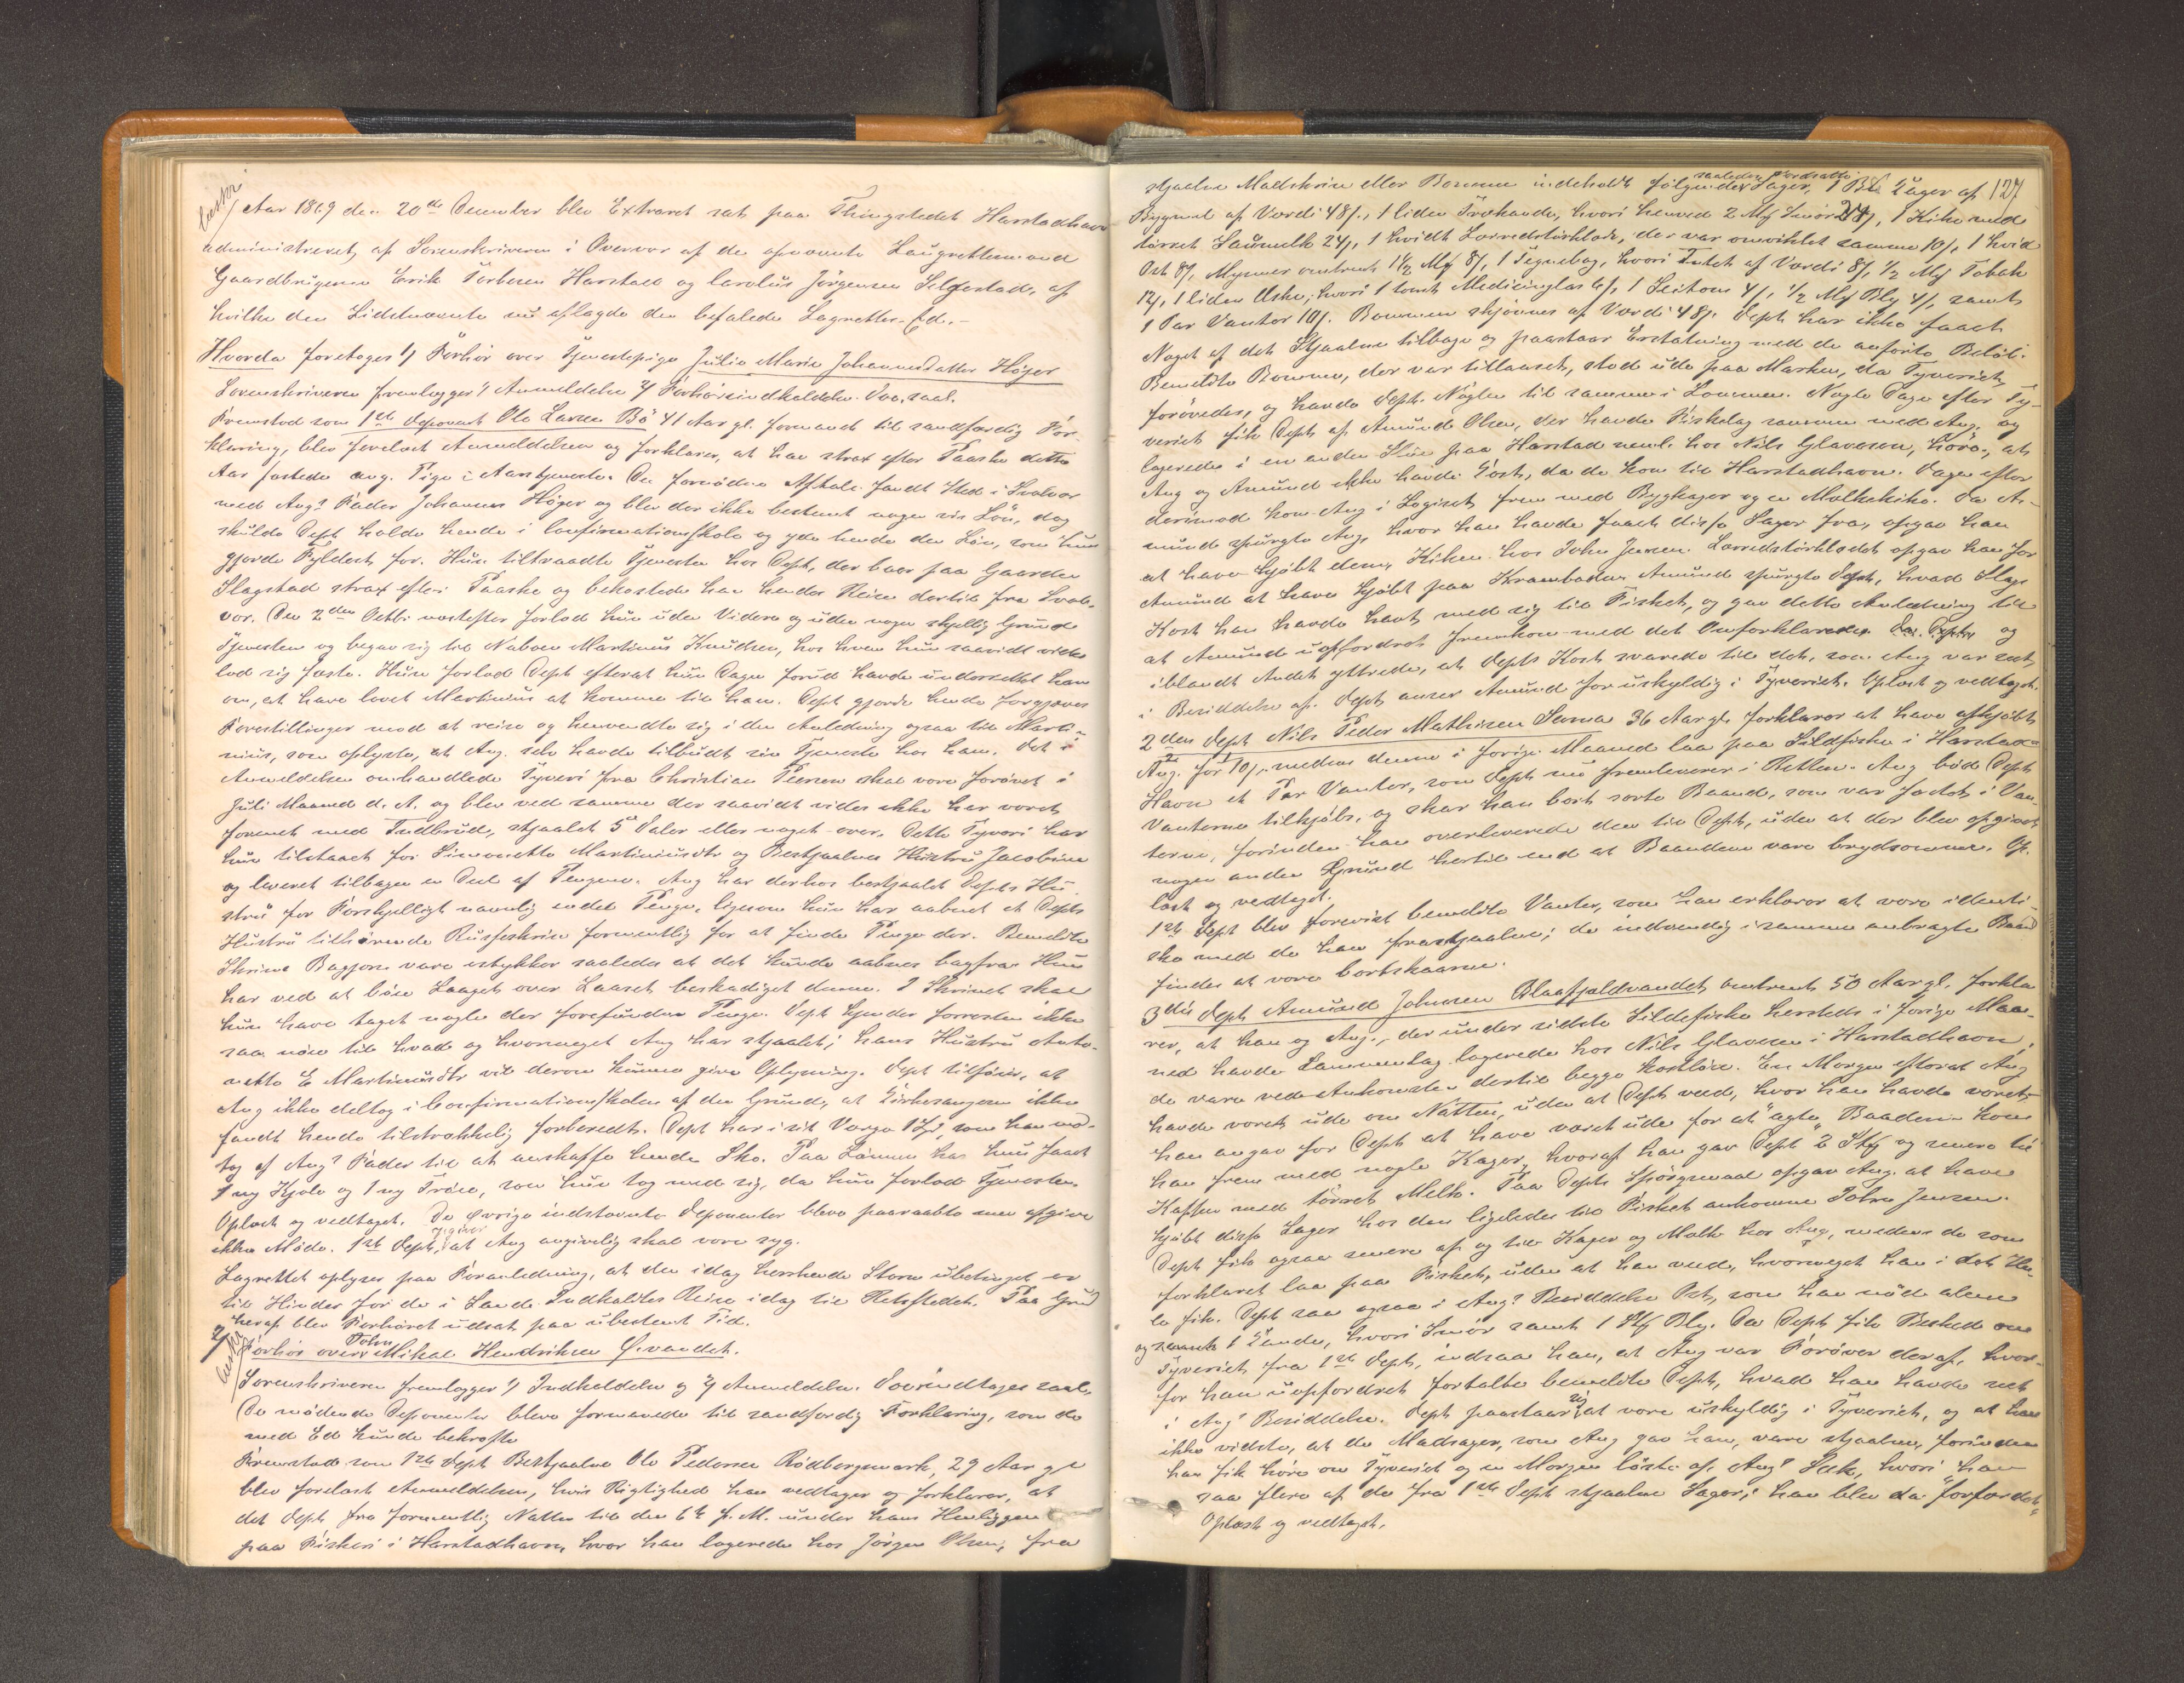 Aar 1869 den 20de December blev Extraret sat paa Thingstedet Harstadhavn
administreret af Sorenskriveren i Overvær af de opnævnte Laugrettemænd
Gaardbrugerne Erik Torbersen Harstad og Carolus Jörgensen Selgestad, af
hvilke den Sidstnævnte nu aflagde den befalede Lagrettes-Ed.-
Hvorda foretoges 1/ Forhör over Tjenestepige Julie Marie Johannesdatter Höger
Sorenskriveren fremlægger 1/ Anmeldelse 2/ Forhörsindkaldelse. Doc. saal.
Fremstod som 1ste Deponent Ole Larsen Bö 41 Aar gl. formanet til sandfærdig For-
klaring, blev forelæst Anmeldelsen og forklarer, at han strax efter Paaske dette
Aar fæstede ang. Pige i Aarstjeneste. Den fornödne Aftale fandt Sted i Svolvær
med Angs Fader Johannes Höger og blev der ikke bestemt nogen vis Lön, dog
skulde Dept holde hende i Confirmationsskole og yde hende den Lön, som hun
gjorde Fyldest for. Hun tiltraadte Tjenesten hos Dept, der boer paa Gaarden
Slagstad strax efter Paaske og bekostede han hendes Reise dertil fra Svol-
vær. Den 2den Octbr næstefter forlod hun uden Videre og uden nogen skjellig Grund
Tjenesten og begav sig til Naboen Martinus Knudsen, hos hvem hun saavidt vides
lod sig fæste. Hun forlod Dept efterat hun Dagen forud havde underrettet ham
om, at have lovet Martinius at komme til ham. Dept gjorde hende forgjæves
Forestillinger mod at reise og henvendte sig i den Anledning ogsaa til Marti-
nius, som oplyste, at Ang. selv havde tilbudt sin Tjeneste hos ham. Det i
Anmeldelsen omhandlede Tyveri fra Christian Piersen skal være forövet i
Juli Maaned d. A. og blev ved samme der saavidt vides ikke har været
forenet med Indbrud, stjaalet 5 Daler eller noget over. Dette Tyveri har
hun tilstaaet for Simonette Martiniusdtr og Bestjaalnes Hustru Jacobine
og leveret tilbage en Deel af Pengene. Ang har derhos bestjaalet Depts Hu-
stru for Forskjelligt navnlig endel Penge, ligesom hun har aabnet et Depts
Hustru tilhörende Rusfeskrin formentlig for at finde Penge der. Bemeldte
Skrins Bagfjere vare istykker saaledes at det kunde aabnes bagfra. Hun
har ved at löse Laaget over Laaset beskadiget denne. I Skrinet skal
hun have taget nogle der forefundne Penge. Dept kjender forresten ikke
saa nöie til hvad og hvormeget Ang har stjaalet; hans Hustru Anto-
nette E Martinusdtr vil derom kunne give Oplysning. Dept tilföier, at
Ang ikke deltog i Confirmationsskolen af den Grund, at Kirkesangeren ikke
fandt hende tilstrækkelig forberedt. Dept har i sit Værge 1 Spd, som han mod-
tog af Angs Fader til at anskaffe hende Sko. Paa Lönnen har hun faaet
1 ny Kjole og 1 ny Tröie, som hun tog med sig, da hun forlod Tjenesten.
Oplæst og vedtaget. De övrige indstævnte Deponenter bleve paaraabte men afgive
ikke Möde. 1ste Dept opgiver, at Ang angivelig skal være syg.
Lagrettet oplyser paa Foranledning, at den idag herskende Storm ubetinget er
til Hinder for de i Sande Indkaldtes Reise idag til Retsstedet. Paa Grund
heraf blev Forhöret udsat paa ubestemt Tid.
2/ Forhör over John Mikal Hendriksen Ö.vandet.
Sorenskriveren fremlægger 1/ Indkaldelse og 2/ Anmeldelse. Doc indtages saal.
De mödende Deponenter bleve formanede til sandfærdig Forklaring, som de
med Ed kunde bekræfte
Fremstod som 1ste Dept Bestjaalne Ole Pedersen Rödbergsmark, 29 Aar gl
blev forelæst Anmeldelsen, hvis Rigtighed han vedtager og forklarer, at
det Dept fra formentlig Natten til den 6te f. M. under hans Henliggen
paa Fiskeri i Harstadhavn, hvor han logerede hos Jörgen Olsen, fra
127
stjaalne Madskrin eller Bommen indeholdt fölgende saaledes værdsatte Sager, 1 Bit Kager af
Bygmel af Værdi 48 s., 1 liden Trækande, hvori henved 2 Mk Smör 24 s, 1 Kihe med
törret Suurmelk 24 s, 1 hvidt Lærredstörklæde, der var omviklet samme 10 s, 1 hvid
Ost 8 s, Mysmer omtrent 1 1/2 Mk 8 s, 1 Tegnebog, hvori Intet af Værdi 8 s, 1/2 Mk Tobak
12 s, 1 liden Æske, hvori 1 tomt Medicinglas 6 s, 1 Seitom 4 s, 1/2 Mk Bly 4 s, samt
1 Par Vanter 10 s. Bommen skjönnes af Værdi 48 s. Dept har ikke faaet
Noget af det Stjaalne tilbage og paastaar Erstatning med de anförte Belöb.
Bemeldte Bommen, der var tillaaset, stod ude paa Marken, da Tyveriet
forövedes, og havde Dept. Nöglen til samme i Lommen. Nogle Dage efter Ty-
veriet fik Dept af Amund Olsen, der havde Fiskelag sammen med Ang. og
logerede i en anden Stue paa Harstad neml. hos Nils Glavesen, höre, at
Ang og Amund ikke havde Kost, da de kom til Harstadhavn. Dagen efter
derimod kom Ang i Logiset frem med Bygkager og en Melkekihe. Da A-
mund spurgte Ang, hvor han havde faaet disse Sager fra, opgav han
at have kjöbt dem, Kihen hos John Jensen Lærredstörklædet opgav han for
Amund at have kjöbt paa Krambaden. Amund spurgte Dept, hvad Slags
Kost han havde havt med sig til Fisket, og gav dette Anledning til
at Amund uopfordret fremkom med det Omforklarede. og
iblandt Andet yttrede, at Depts Kost svarede til det, som Ang var seet
i Besiddelse af. Dept anser Amund for uskyldig i Tyveriet. Oplæst og vedtaget.
2den Dept Nils Peder Mathisen Sama 36 Aar gl. forklarer at have afkjöbt
Ang. for 10 s, medens denne i forrige Maaned laa paa Sildfiske i Harstad-
Havn et Par Vanter, som Dept nu fremleverer i Retten. Ang böd Dept
Vanterne tilkjöbs, og skar han bort sorte Baand, som var fæstet i Van-
terne, forinden han overleverede dem til Dept, uden at der blev opgivet
nogen anden Grund hertil end at Baandene vare brydsomme. Op-
læst og vedtaget.
1ste Dept blev forevist bemeldte Vanter, som han erklærer at være identi-
ske med de ham frastjaalne; de indvendig i samme anbragte Baand
findes at være bortskaarne.
3die Dept Amund Johnsen Blaafjeldvandet, omtrent 50 Aar gl. forkla
rer, at han og Ang., der under sidste Sildefiske hersteds i forrige Maa-
ned havde Sammenlag, logerede hos Nils Glavesen i Harstadhavn;
de vare ved Ankomsten dertil begge kostlöse. En Morgen efterat Ang
havde været ude om Natten, uden at Dept veed, hvor han havde været,
han angav for Dept at have været ude for at "agte" Baaden, kom
han frem med nogle Kager, hvoraf han gav Dept 2 Stk og senere til
Kaffen med törret Melk. Paa Depts Spörgsmaal opgav Ang. at have
kjöbt disse Sager hos den ligeledes til Fisket ankomne John Jensen.
Dept fik ogsaa senere af og til Kager og Melk hos Ang, medens de som
forklaret laa paa Fisket, uden at han veed, hvormeget han i det He-
le fik. Dept saa ogsaa i Angs Besiddelse Ost, som han nöd alene
og samt 1 Kande, hvori Smör samt 1 Stk Bly. Da Dept fik Besked om
Tyveriet fra 1ste Dept, indsaa han, at Ang var Foröver deraf, hvor-
for han uopfordret fortalte bemeldte Dept, hvad han havde seet
i Angs Besiddelse. Dept paastaar sig at være uskyldig i Tyveriet, og at han
ikke vidste, at de Madsager, som Ang gav ham, vare stjaalne, forinden
han fik höre om Tyveriet og en Morgen löste af Angs Sæk, hvori han
saa flere af de fra 1ste Dept stjaalne Sager; han blev da "forfærdet"
Oplæst og vedtaget.